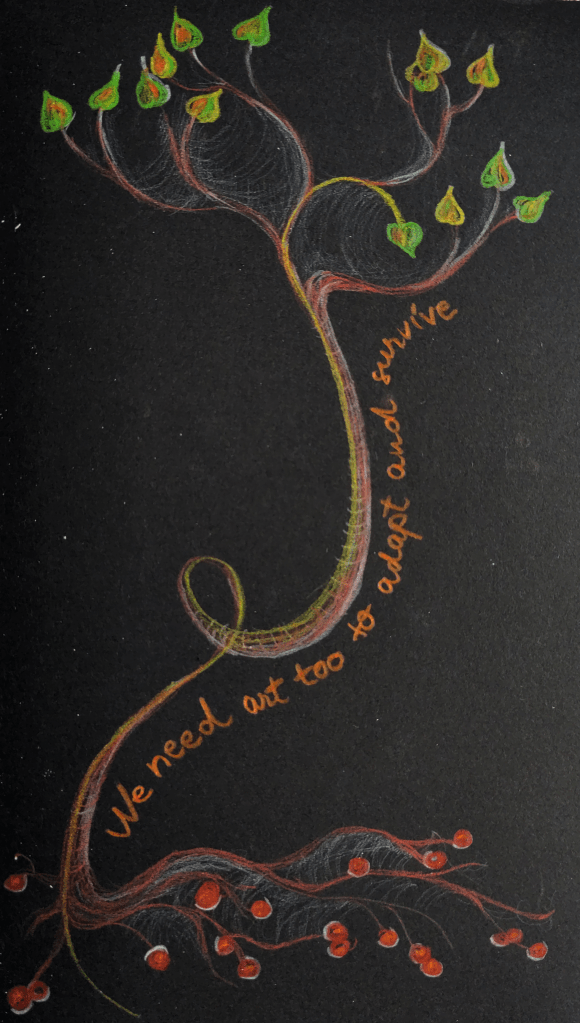 We need art too to adapt and survive